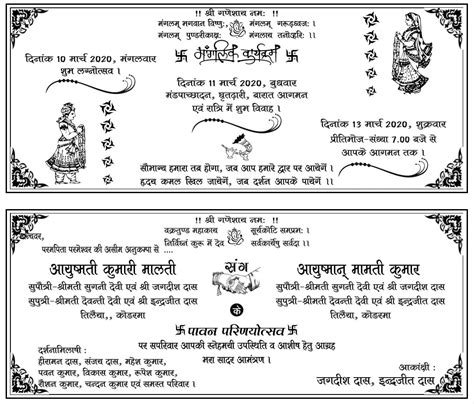 !! श्री गणेशाय नमः !!
मंगलम् भगवान विष्णु, मंगलम् गरूड़ध्वजः।
मंगलम् पुण्डरीकाक्षः, मंगलाय तनोहरिः।।
मांगलिक कार्यक्रम
दिनांक 10 मार्च 2020, मंगलवार
शुभ लग्नोत्सव।
दिनांक 11 मार्च 2020, बुधवार
मंडपाच्छादन, घृतढ़ारी, बारात आगमन
एवं रात्रि में शुभ विवाह।
दिनांक 13 मार्च 2020, शुक्रवार
प्रीतिभोज-संध्या 7.00 बजे से
आपके आगमन तक।
सौभाग्य हमारा तब होगा, जब आप हमारे द्वार पर आयेगें।
हृदय कमल खिल जायेगें, जब दर्शन आपके पायेगें।।
!! श्री गणेशाय नमः !!
वक्रतुण्ड महाकाय सूर्यकोटि समप्रभः।
निर्विघ्नं कुरू मे देव सर्वकार्येषु सर्वदा।।
परमपिता परमेश्वर की असीम अनुकम्पा से ....
आयुष्मती कुमारी मालती
सुपौत्री-श्रीमती सुगनी देवी एवं श्री जगदीश दास
सुपुत्री-श्रीमती देवन्ती देवी एवं श्री इन्द्रजीत दास
तिलैया,, कोडरमा
संग
आयुष्मान् मामती कुमार
सुपौत्री-श्रीमती सुगनी देवी एवं श्री जगदीश दास
सुपुत्री-श्रीमती देवन्ती देवी एवं श्री इन्द्रजीत दास
तिलैया,, कोडरमा
के
पावन परिणयोत्सव
पर सपरिवार आपकी स्नेहमयी उपस्थिति व आशीष हेतु आग्रह
भरा सादर आमंत्रण।
दर्शनाभिलाषी :
हीरामन दास, संजय दास, महेश कुमार,
पवन कुमार, विकास कुमार, रूपेश कुमार,
रौशन कुमार, चन्दन कुमार एवं समस्त परिवार।
आकांक्षी :
जगदीश दास, इन्द्रजीत दास